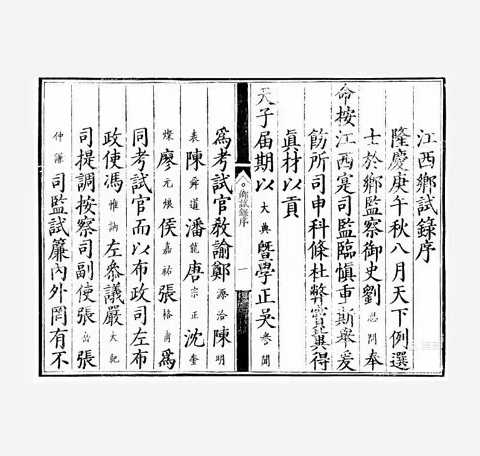 江西鄉試錄序
隆慶庚午秋八月天下例選
士於鄉監察御史劉思問奉
命按江西寔司監臨慎重斯舉爰
飭所司申科條杜弊竇冀得
真材以貢
天子届期以大典曁學正吳參聞
鄉試錄序
一
爲考試官教諭鄭源洽陳明
表陳舜道潘龍唐宗正沈奎
燦廖元悵侯嘉祐張格甫爲
同考試官而以布政司左布
政使馮惟訥左叅議嚴大紀
司提調按察司副使張岳張
仲謙司監試簾內外罔有不